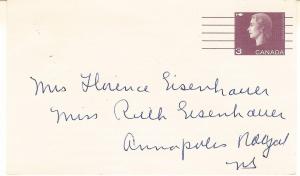 3
CANADA
Mrs Florence Eisenhauer
Miss Ruth Eisenhauer
Annapolis Royal
NS